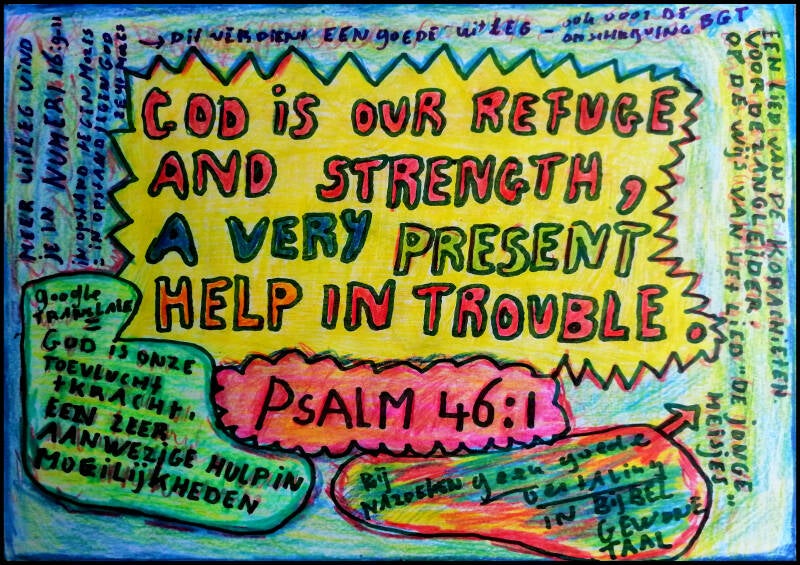 → DIT VERDIENT EEN GOEDE UITLEG - OOK VOOR DE
OMSCHRIJVING BGT
MEER UITLEG VIND
JE IN NUMERI 16:9-11
IN OPSTAND TEGEN MOZES
= IN OPSTAND TEGEN GOD
GOD IS OUR REFUGE
AND STRENGTH,
A VERY PRESENT
HELP IN TROUBLE.
PSALM 46:1
EEN LIED VAN DE KORACHIETEN
VOOR DE ZANGLEIDER.
OP DE WIJS VAN HET LIED "DE JONGE
MEISJES"
google
TRANSLATE
GOD IS ONZE
TOEVLUCHT
+ KRACHT.
EEN ZEER
AANWEZIGE HULP IN
MOEILIJKHEDEN
BIJ
NAZOEKEN geen goede
VERTALING
IN BIJBEL
GEWONE
TAAL